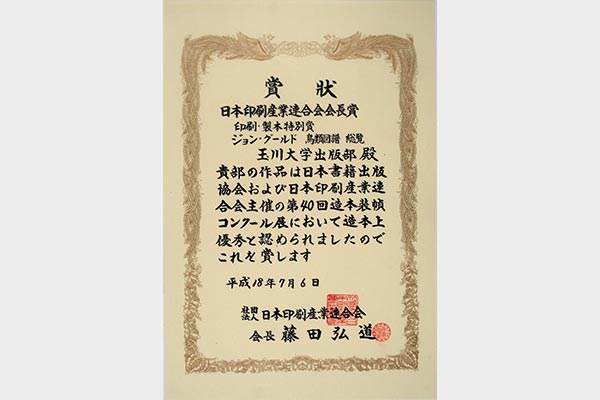 賞状
日本印刷産業連合会会長賞
印刷・製本特別賞
ジョン・グールド 鳥類図譜 総覧
玉川大学出版部 殿
貴部の作品は日本書籍出版
協会および日本印刷産業連
合会主催の第40回造本装幀
コンクール展において造本上
優秀と認められましたので
これを賞します
平成18年7月6日
社団法人 日本印刷産業連合会
会長 藤田弘道